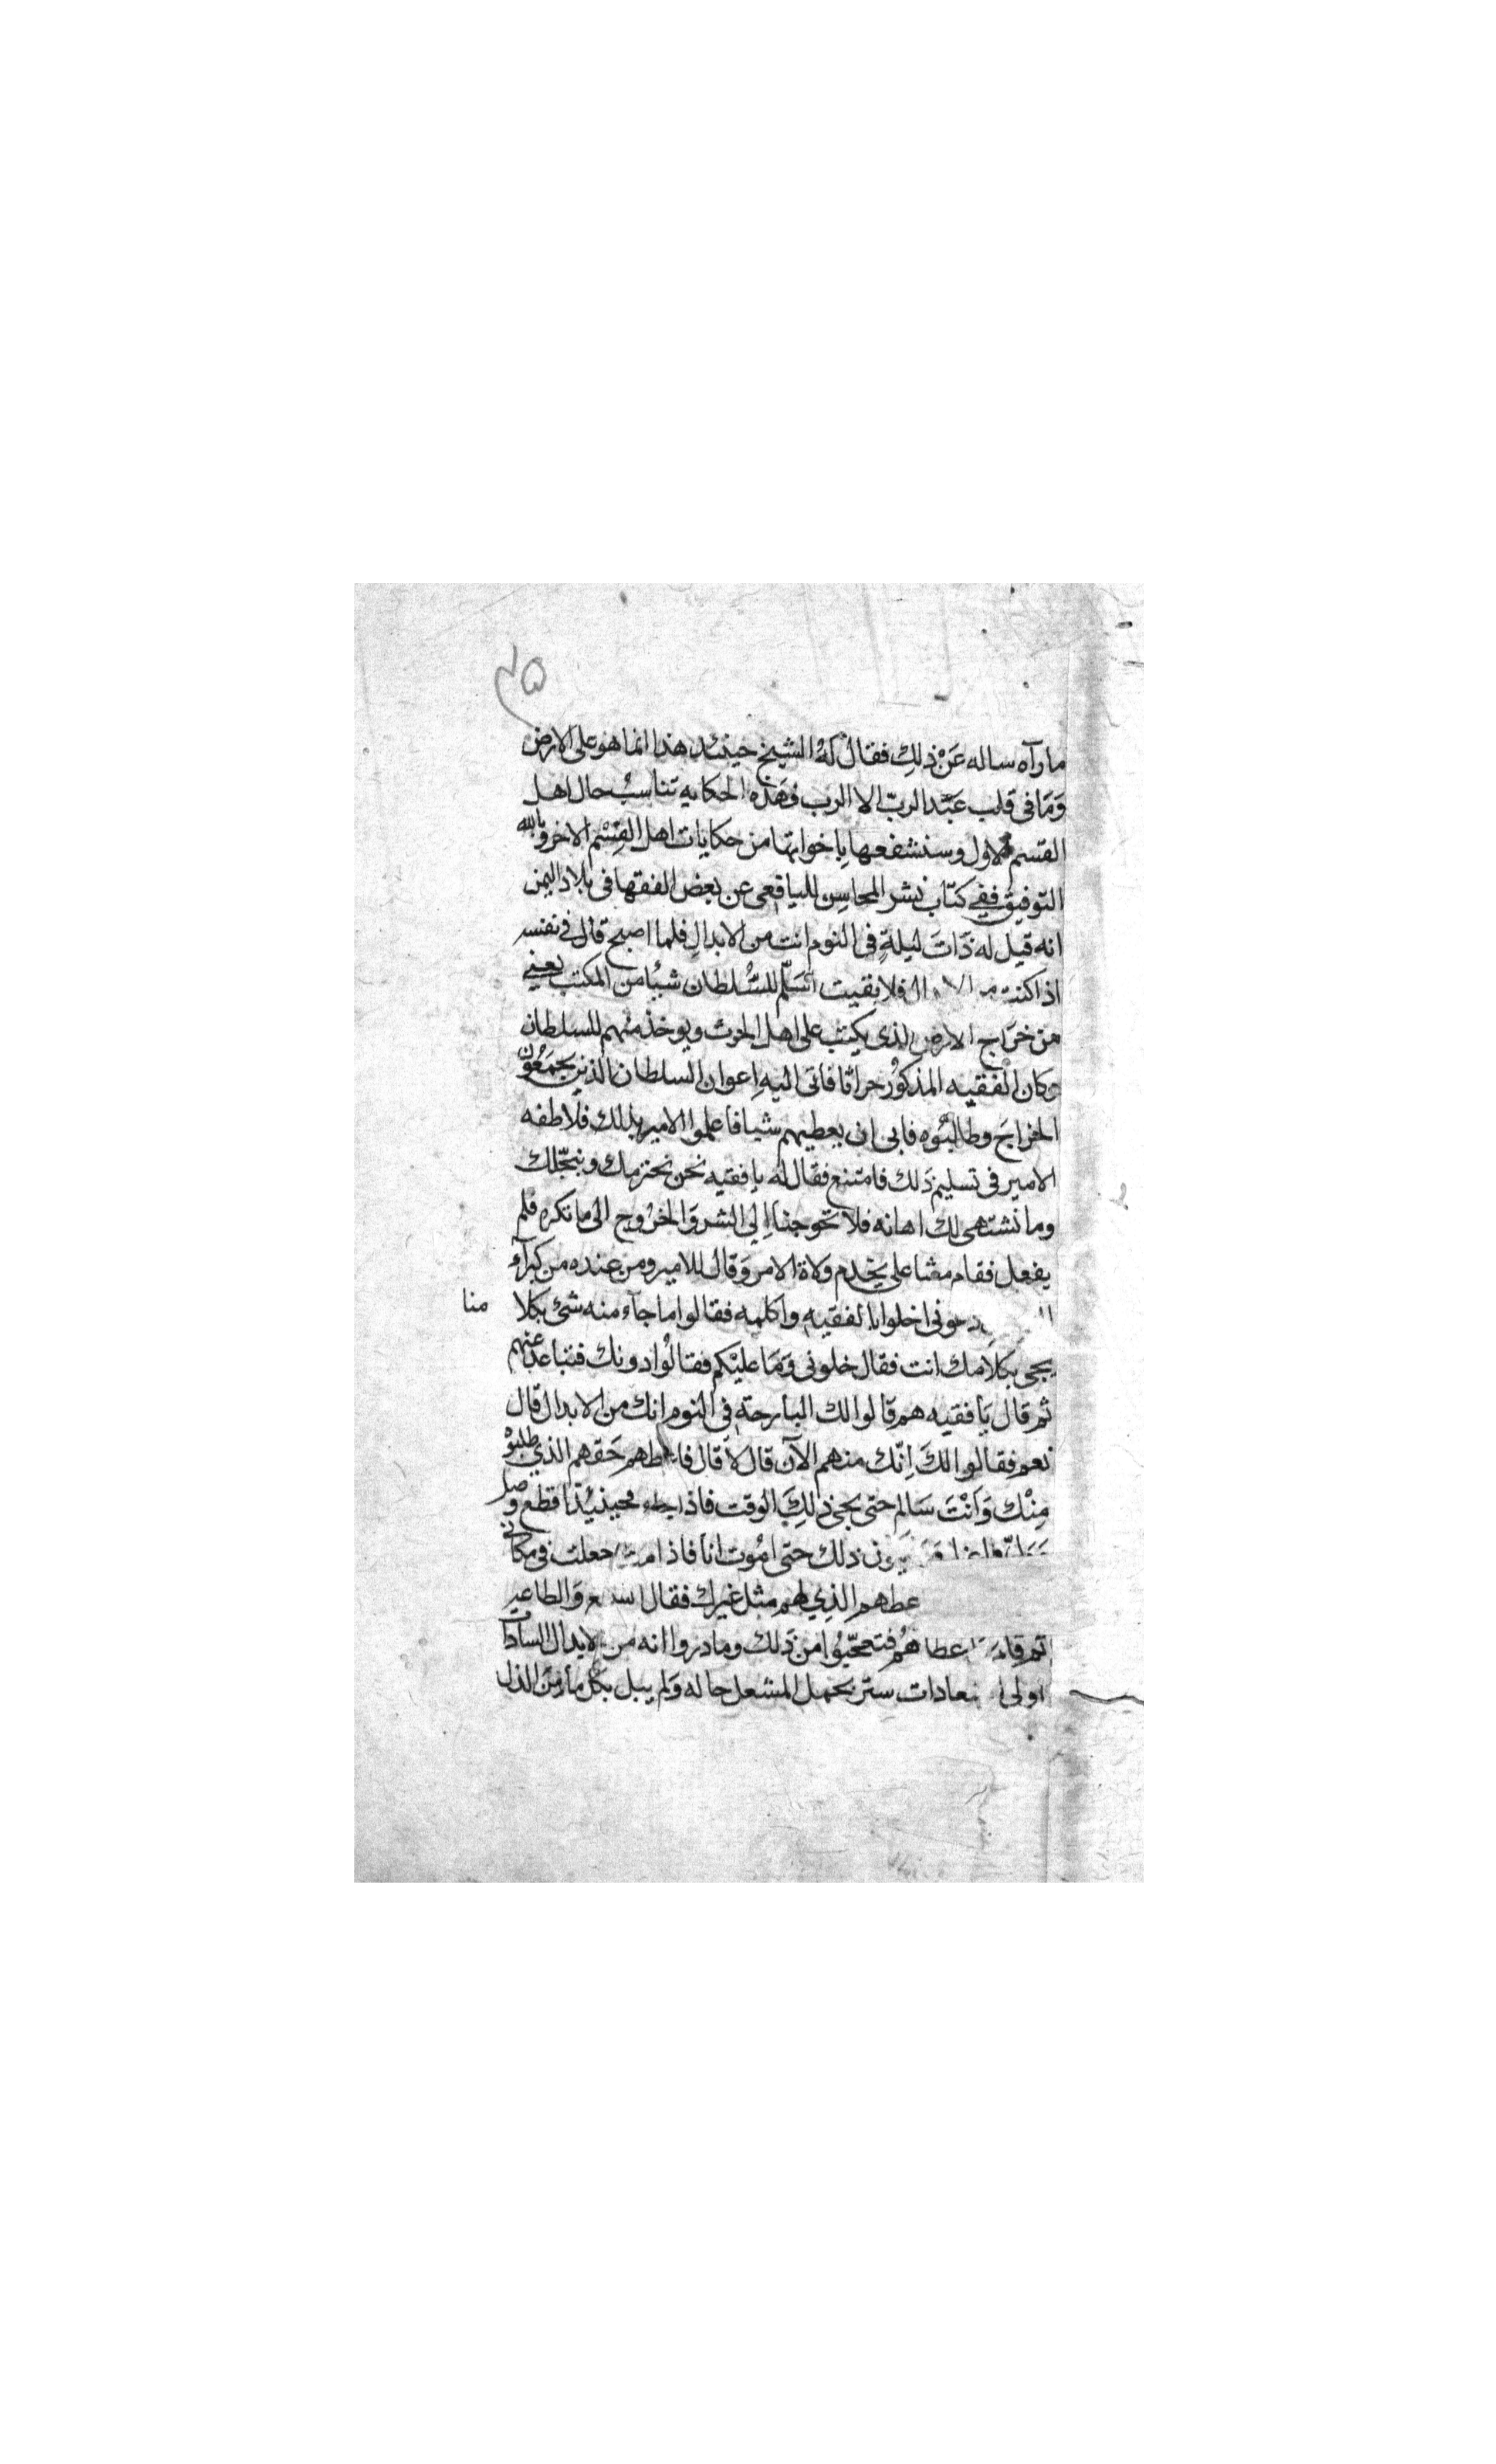 ٢٥
ما رآه ساله عَنْ ذلِك فقالْ لهُ الشيخ حينئد هذا انما هو على الارض
وَمَا فى قلب عَبْد الربّ الا الرب فهَذه الحكايه تناسبُ حال اهل
القسم الاول وسنشفعها باخواتها من حكايات اهل القِسْم الاخر وبالله
التوفيق ففى كتاب نشر المحاسِن لليافعى عن بعض الفقها فى بلاد اليمن
انه قيل له ذَاتَ ليلةٍ فى النوم انت من الابدالِ فلما اصبح قال فى نفسه
اذا كنت فلا بقيت اسَلّم للسُّلطان شيئا من المكتب يعنى
من خرَاج الارض الذى يكتب على اهل الحرث ويوخذ منهم للسلطان
وكان الفقيه المذكوُر حراثا فاتى اليهِ اعوان السلطان الذين يجمَعُون
الخراجَ وطالبُوه فابى ان يعطيهم شيا فاعلموا الامير بذلك فلاطفه
الامير فى تسليم ذَلك فامتنع فقال له يا فقيه نحن نحترمك ونبجّلك
وما نشتهى لك اهانه فلا تحوجنا اِلى الشر وَالخرُوج الى ما تكره فلم
يفعل فقام مشاعلى يخدم ولاة الامر وَقال للامير ومن عنده من كبرآء
دعونى اخلوا بالفقيه واكلمه فقالوا ما جآء منه شئ بكلا منا
يجى بكلامك انت فقال خلونى وَمَا عليْكم فقالوُا دونك فتباعد عنهم
ثم قال يَا فقيه هم قالوا لك البارحة فى النوم انك من الابدال قال
نعم فقالوا لكَ اِنّك منهم الآن قال لا قال فاعطهم حَقهم الذي طلبوْ
مِنْك وَانْتَ سَالم حتى يجى ذلِكَ الوقت فاذا جاء فحينيُذا قطع وصل
ذلك حتى امُوت انا فاذا جعلت فى مكانى
عطهم الذِي لهم مثل غيرك فقال وَالطاعه
ثم قام اعطاهُم فتعجّبوُا من ذَلك وما دروا انه من الابدال السادات
اولى ستر بحمل المشعل حاله وَلم يبل بكل مأ من الذل